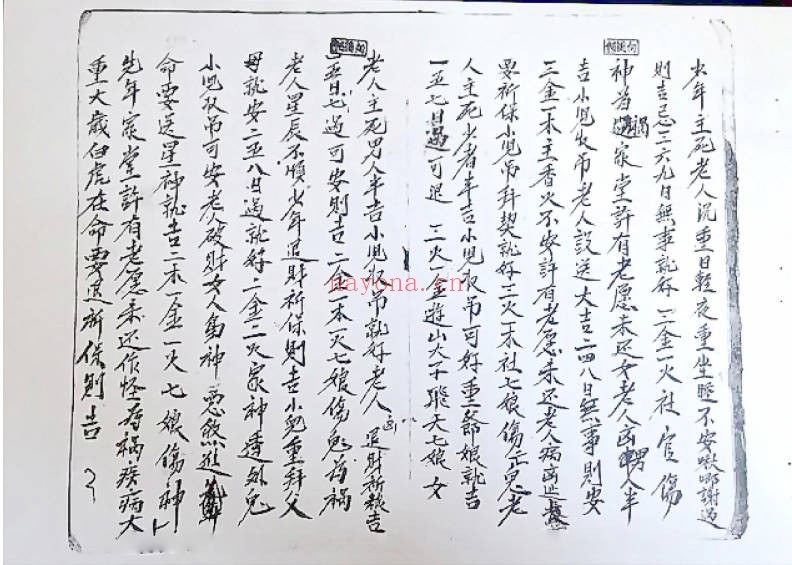 少年主死老人沉重日輕夜重坐睡不安啾唧謝過
則吉忌三六九日無事就好 二金一火社官傷
神為禍家堂許有老愿未还女老人凶男人半
吉小児收吊老人設送大吉二四八日無事則安
三金一木主香火不安許有老愿未还老人病凶
要祈保小児吊拜契就好三火一木社七娘傷亡鬼老
人主死少者半吉小児收吊可好重爺娘就吉
一五七日過可退 三火一金遊山大王 天七娘女
老人主死男人半吉小児收吊就好老人凶退財祈報吉
五日七過可安則吉 二金一木一火七娘傷鬼為禍
老人星辰不順少年退財祈保則吉小児重拜父
母就安二五八日過就好 二金二火家神透外鬼
小児收吊可安老人破財女人為神悪煞進
命要送星神就吉二木一金一火七娘傷神
先年家堂許有老愿未还作怪為禍疾病大
重大歳白虎在命要退祈保則吉
nayona.cn